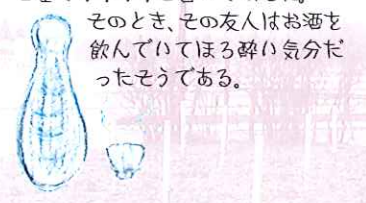 そのとき、その友人はお酒を
飲んでいてほろ酔い気分だ
ったそうである。